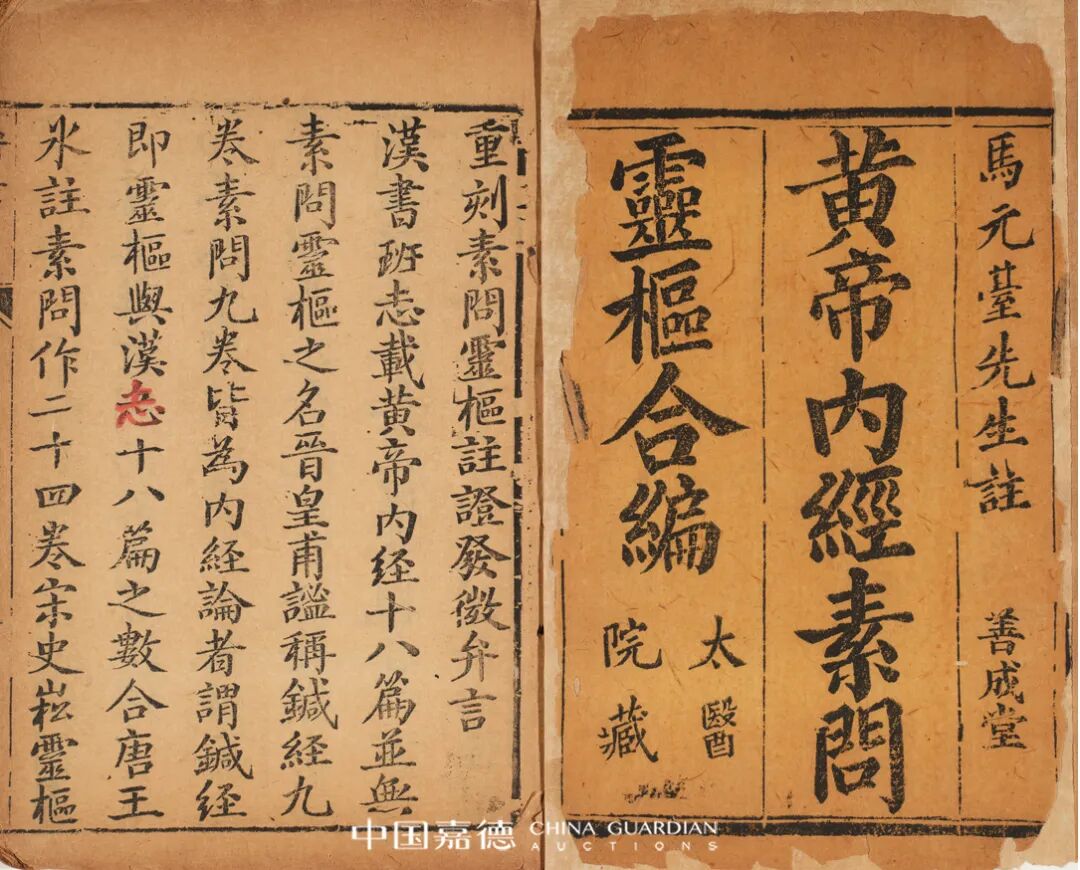 馬元臺先生註 善成堂
黃帝内經素問
靈樞合編
太醫
院藏
重刻素問靈樞註證發微弁言
漢書班志載黃帝内経十八篇並無
素問靈樞之名晉皇甫謐稱鍼経九
卷素問九卷皆為内経論者謂鍼経
即靈樞與漢志十八篇之數合唐王
氷註素問作二十四卷宋史崧靈樞
中国嘉德 CHINA GUARDIAN
AUCTIONS